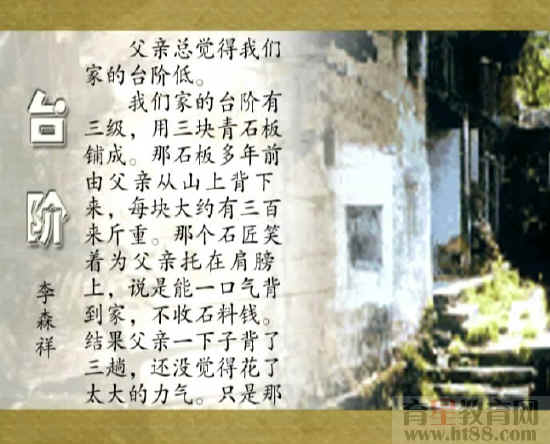 台阶
李森祥
父亲总觉得我们
家的台阶低。
我们家的台阶有
三级，用三块青石板
铺成。那石板多年前
由父亲从山上背下
来，每块大约有三百
来斤重。那个石匠笑
着为父亲托在肩膀
上，说是能一口气背
到家，不收石料钱。
结果父亲一下子背了
三趟，还没觉得花了
太大的力气。只是那
育星教育网
www.ht88.com